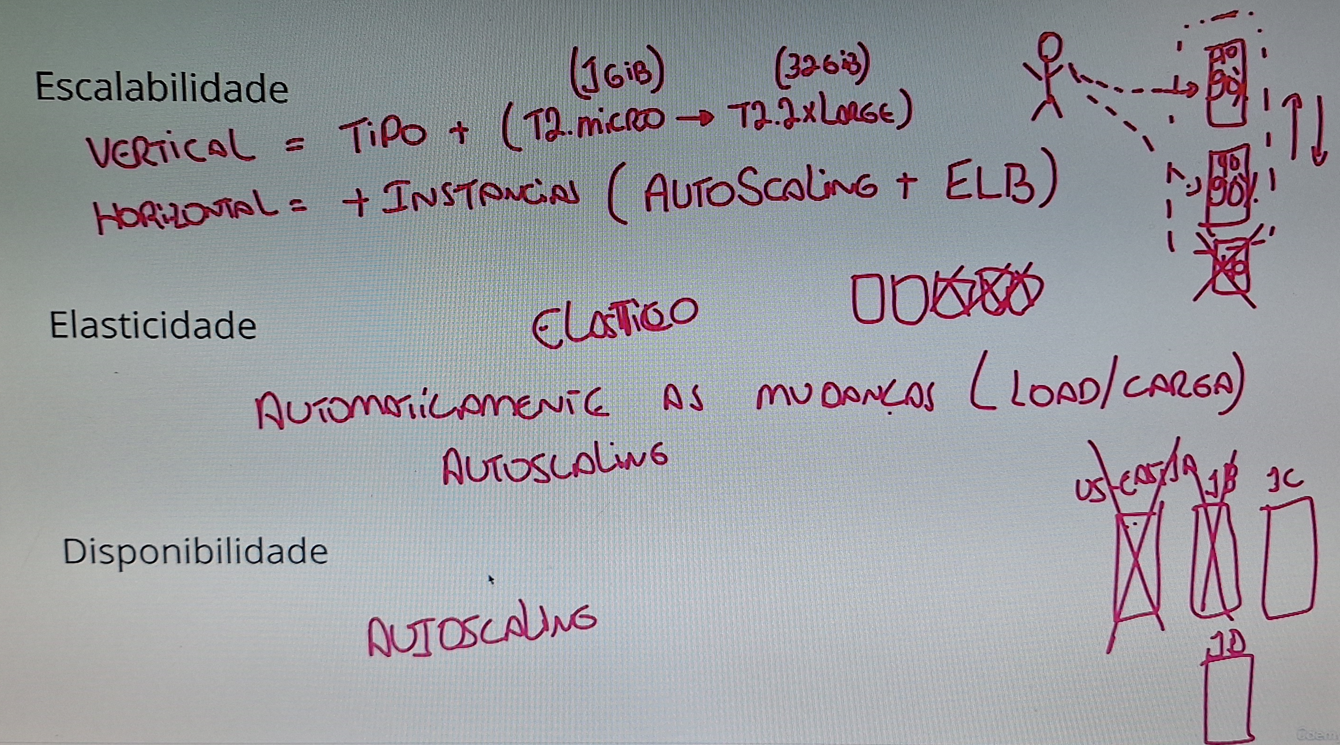 Escalabilidade
(1GiB) (32GiB)
VERTICAL = TIPO + (T2.MICRO → T2.2XLARGE)
HORIZONTAL = + INSTANCIAS (AUTOSCALING + ELB)
90
90%
90
90%
Elasticidade
ELASTICO
AUTOMATICAMENTE AS MUDANÇAS (LOAD/CARGA)
AUTOSCALING
US-EAST/1A 1B 1C
Disponibilidade
AUTOSCALING
1D